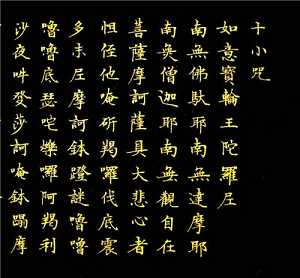 十小咒
如意寶輪王陀羅尼
南無佛馱耶南無達摩耶
南無僧迦耶南無觀自在
菩薩摩訶薩具大悲心者
怛侄他唵斫羯囉伐底震
多末尼摩訶鉢蹬謎嚕嚕
嚕嚕底瑟咤爍囉阿羯利
沙夜吽癹莎訶唵鉢蹋摩